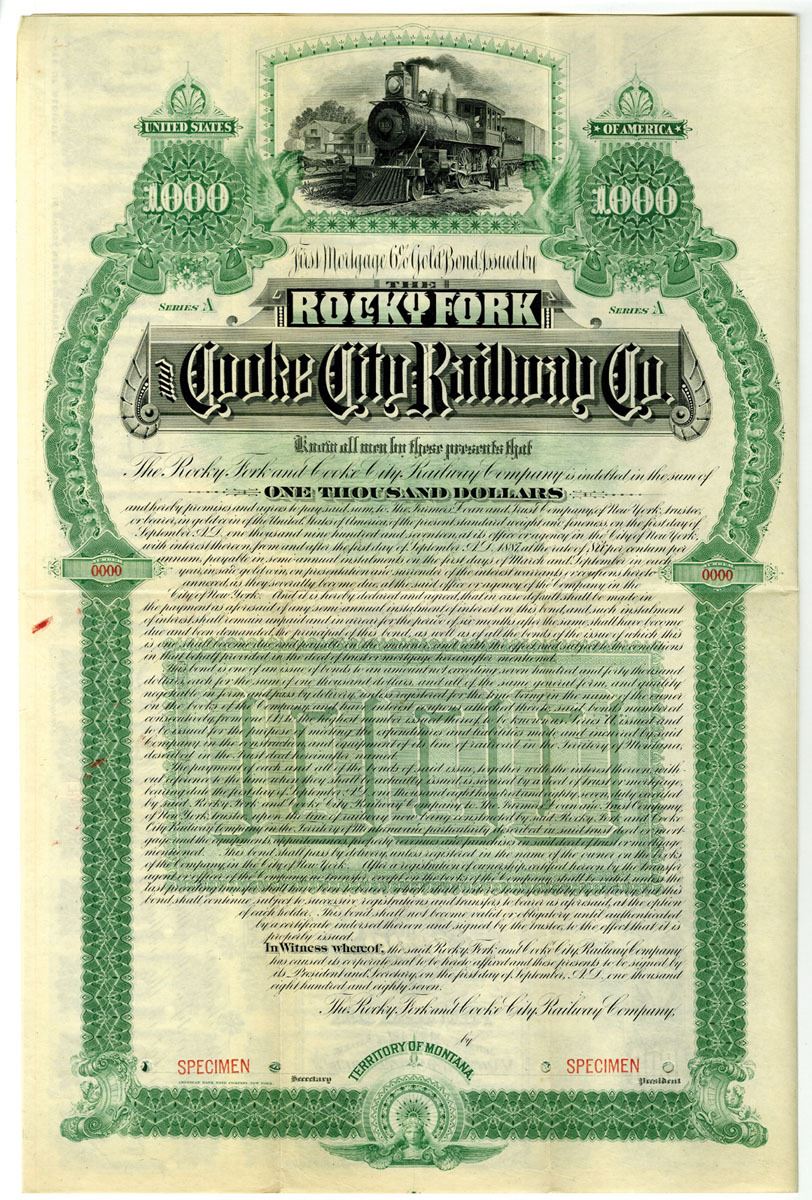 UNITED STATES
OF AMERICA
1000
1000
First Mortgage 6% Gold Bond, Issued by
THE
SERIES A
ROCKY FORK
SERIES A
AND Cooke City Railway Co.
Know all men by these presents that
The Rocky Fork and Cooke City Railway Company is indebted in the sum of
ONE THOUSAND DOLLARS
and hereby promises and agrees to pay said sum, to The Farmers Loan and Trust Company, of New York, trustee,
or bearer, in gold coin of the United States of America, of the present standard weight and fineness, on the first day of
September, A.D. one thousand nine hundred and seventeen, at its office or agency in the City of New York,
with interest thereon, from and after the first day of September, A.D. 1887, at the rate of Six per centum per
annum, payable in semi-annual instalments on the first days of March and September in each
year, in like gold coin, on presentation and surrender of the interest warrants or coupons hereto
annexed, as they severally become due, at the said office or agency of the Company, in the
0000
0000
City of New York. And it is hereby declared and agreed, that in case default shall be made in
the payment as aforesaid of any semi-annual instalment of interest on this bond, and such instalment
of interest shall remain unpaid and in arrears for the period of six months after the same shall have become
due and been demanded, the principal of this bond, as well as of all the bonds of the issue of which this
is one shall become due and payable in the manner and with the effect and subject to the conditions
in that behalf provided in the deed of trust or mortgage hereinafter mentioned.
This bond is one of an issue of bonds to an amount not exceeding seven hundred and forty thousand
dollars, each for the sum of one thousand dollars, and all of the same general form, and equally
negotiable in form and pass by delivery, unless registered for the time being in the name of the owner
on the books of the Company, and have interest coupons attached thereto, said bonds numbered
consecutively from one (1) to the highest number issued thereof, to be known as Series A issued and
to be issued for the purpose of meeting the expenditures and liabilities made and incurred by said
Company, in the construction and equipment of its line of railroad in the Territory of Montana,
described in the trust deed hereinafter named.
The payment of each and all of the bonds of said issue, together with the interest thereon, with-
out reference to the time when they shall be actually issued, is secured by a deed of trust or mortgage,
bearing date the first day of September, A.D. one thousand eight hundred and eighty seven, duly executed
by said Rocky Fork and Cooke City Railway Company to The Farmers Loan and Trust Company,
of New York, trustee, upon the line of railroad now being constructed by said Rocky Fork and Cooke
City Railway Company in the Territory of Montana, more particularly described in said trust deed or mort-
gage and the equipments, appurtenances, property, revenues and franchises in said deed of trust or mortgage
mentioned. This bond shall pass by delivery, unless registered in the name of the owner on the books
of the Company, in the City of New York. After a registration of ownership, certified hereon by the Transfer
agent or officer of the Company, no transfer, except on the books of the Company, shall be valid, unless the
last preceding transfer shall have been to bearer, which shall restore transferability by delivery; but this
bond shall continue subject to successive registrations and transfers to bearer as aforesaid, at the option
of each holder. This bond shall not become valid or obligatory until authenticated
by a certificate endorsed thereon and signed by the trustee, to the effect that it is
properly issued.
In Witness whereof, the said Rocky Fork and Cooke City Railway Company
has caused its corporate seal to be hereto affixed and these presents to be signed by
its President and Secretary, on the first day of September, A.D. one thousand
eight hundred and eighty seven.
The Rocky Fork and Cooke City Railway Company,
by
TERRITORY OF MONTANA.
SPECIMEN
SPECIMEN
AMERICAN BANK NOTE COMPANY, NEW YORK.
Secretary
President